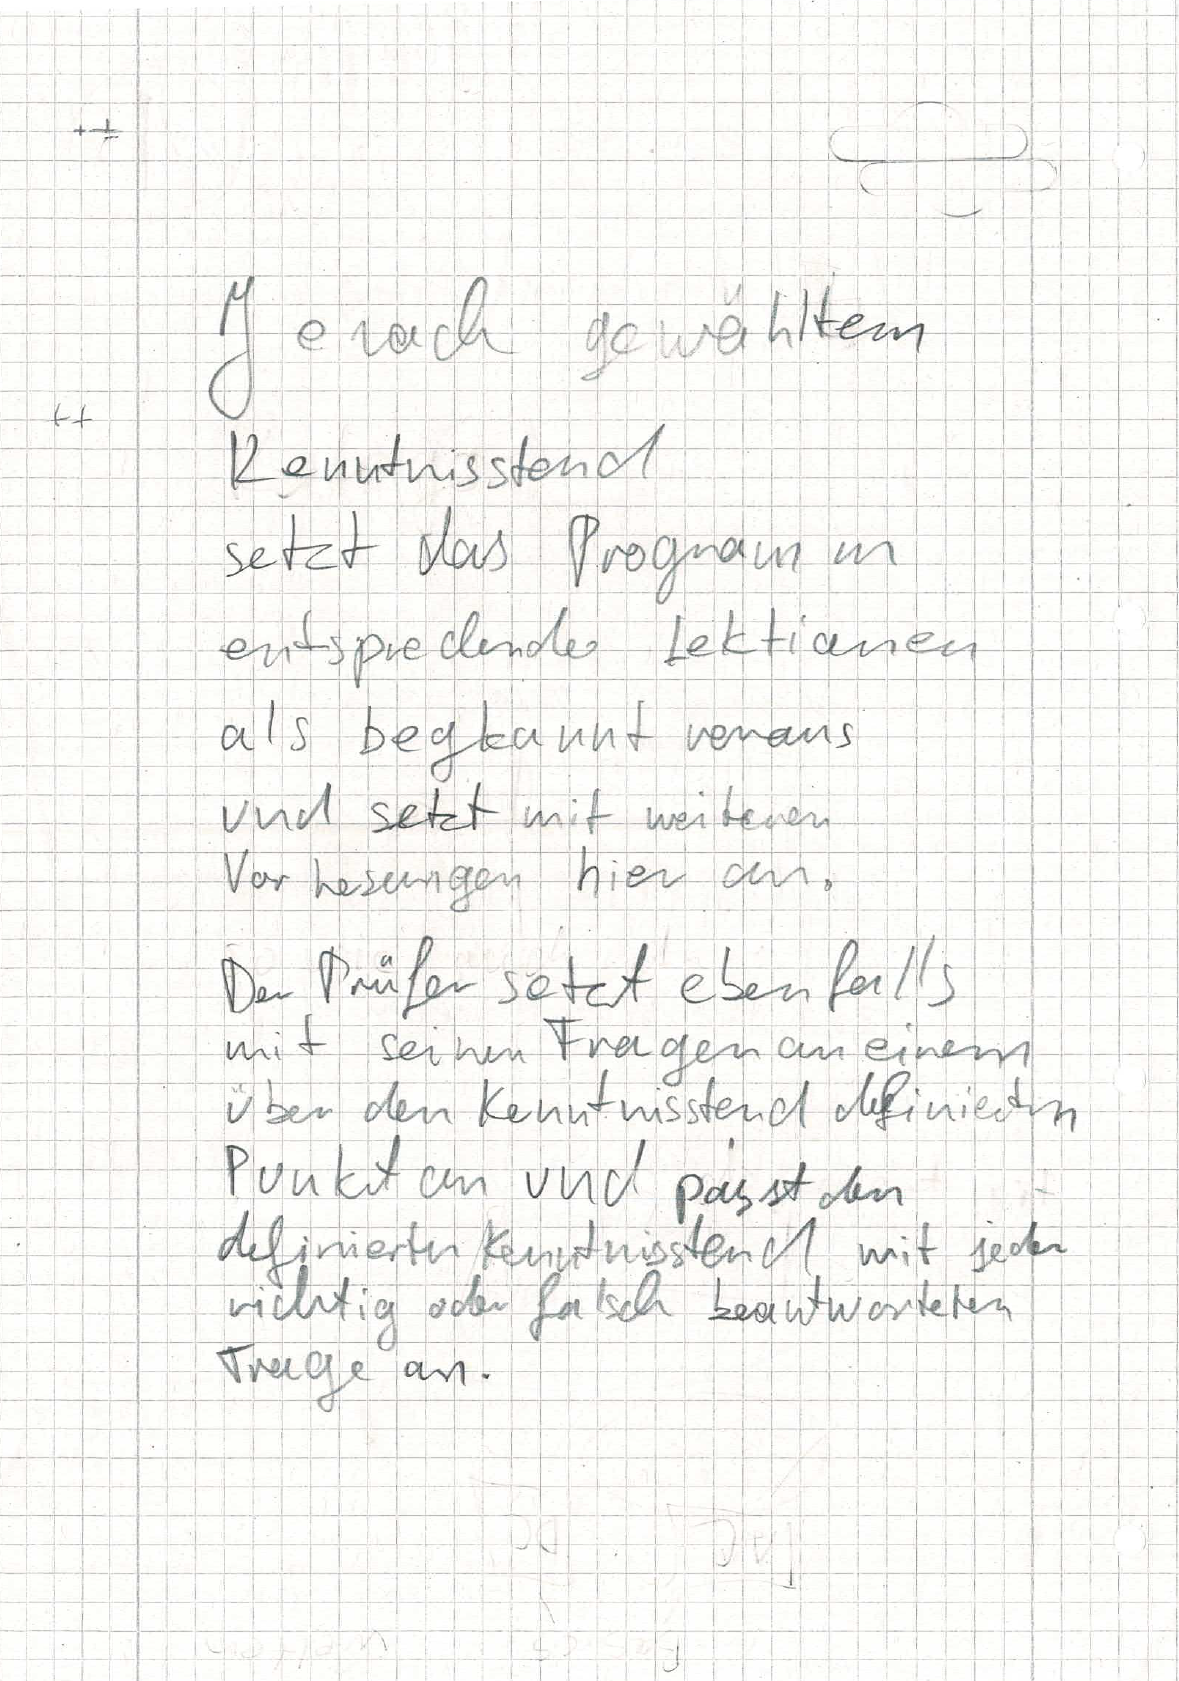 Je nach gewähltem
Kenntnisstand
setzt das Programm
entsprechende Lektionen
als begkannt voraus
und setzt mit weiteren
Vorlesungen hier an.
Der Prüfer setzt ebenfalls
mit seinen Fragen an einem
über den Kenntnisstand definierten
Punkt an und passt den
definierten Kenntnisstand mit jeder
richtig oder falsch beantworteten
Frage an.